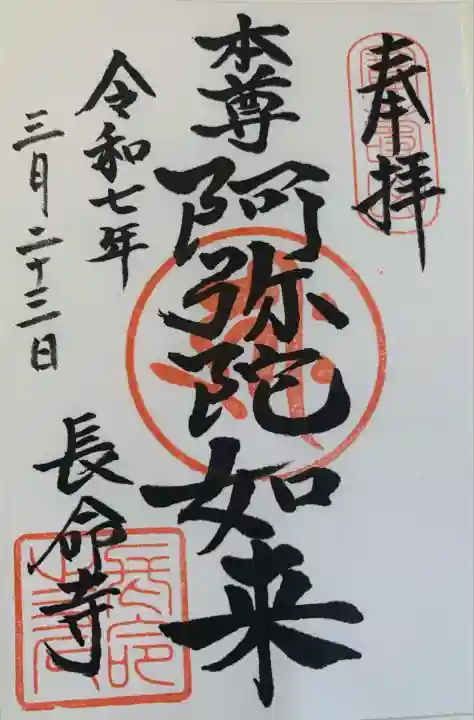 奉拝
本尊阿弥陀如来
令和七年
三月二十三日
長命寺